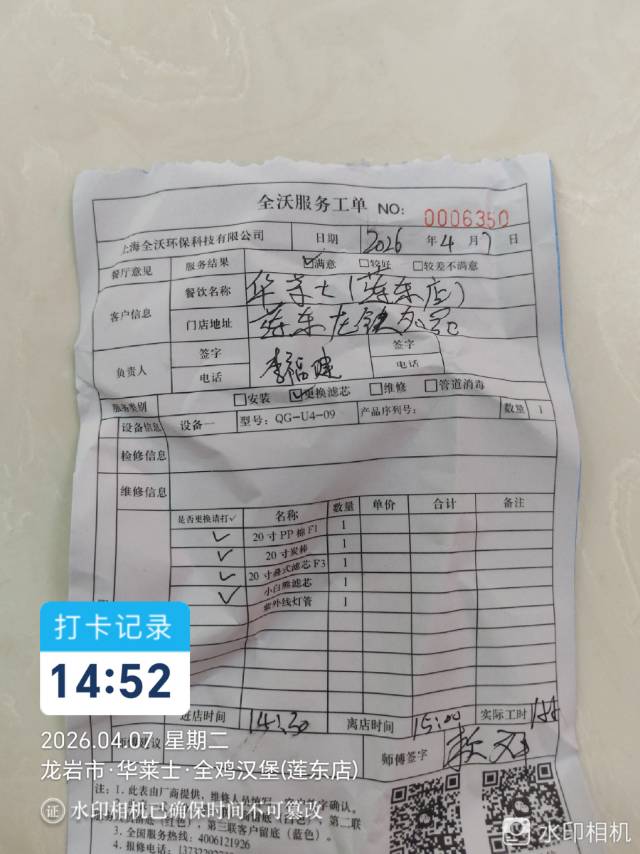 全沃服务工单 NO: 0006350
上海全沃环保科技有限公司 日期 2026 年 4 月 7 日
餐厅意见 服务结果 ☑满意 □较好 □较差不满意
客户信息 餐饮名称 华莱士(莲东店)
门店地址 莲东
负责人 签字 李福建 签字
电话 电话
服务类别 □安装 ☑更换滤芯 □维修 □管道消毒
设备信息 设备一 型号: QG-U4-09 产品序列号: 数量 1
检修信息
维修信息
是否更换请打✓ 名称 数量 单价 合计 备注
✓ 20寸PP棉F1 1
✓ 20寸炭棒 1
✓ 20寸叠式滤芯F3 1
✓ 小白熊滤芯 1
✓ 紫外线灯管 1
进店时间 14:30 离店时间 15:00 实际工时
师傅签字
打卡记录
14:52
2026.04.07 星期二
龙岩市·华莱士·全鸡汉堡(莲东店)
证 水印相机已确保时间不可篡改
1. 此表由厂商提供,维修人员填写
字确认。
第三联客户留底(蓝色)。
3. 全国服务热线: 4006121926
4. 报修电话:
水印相机